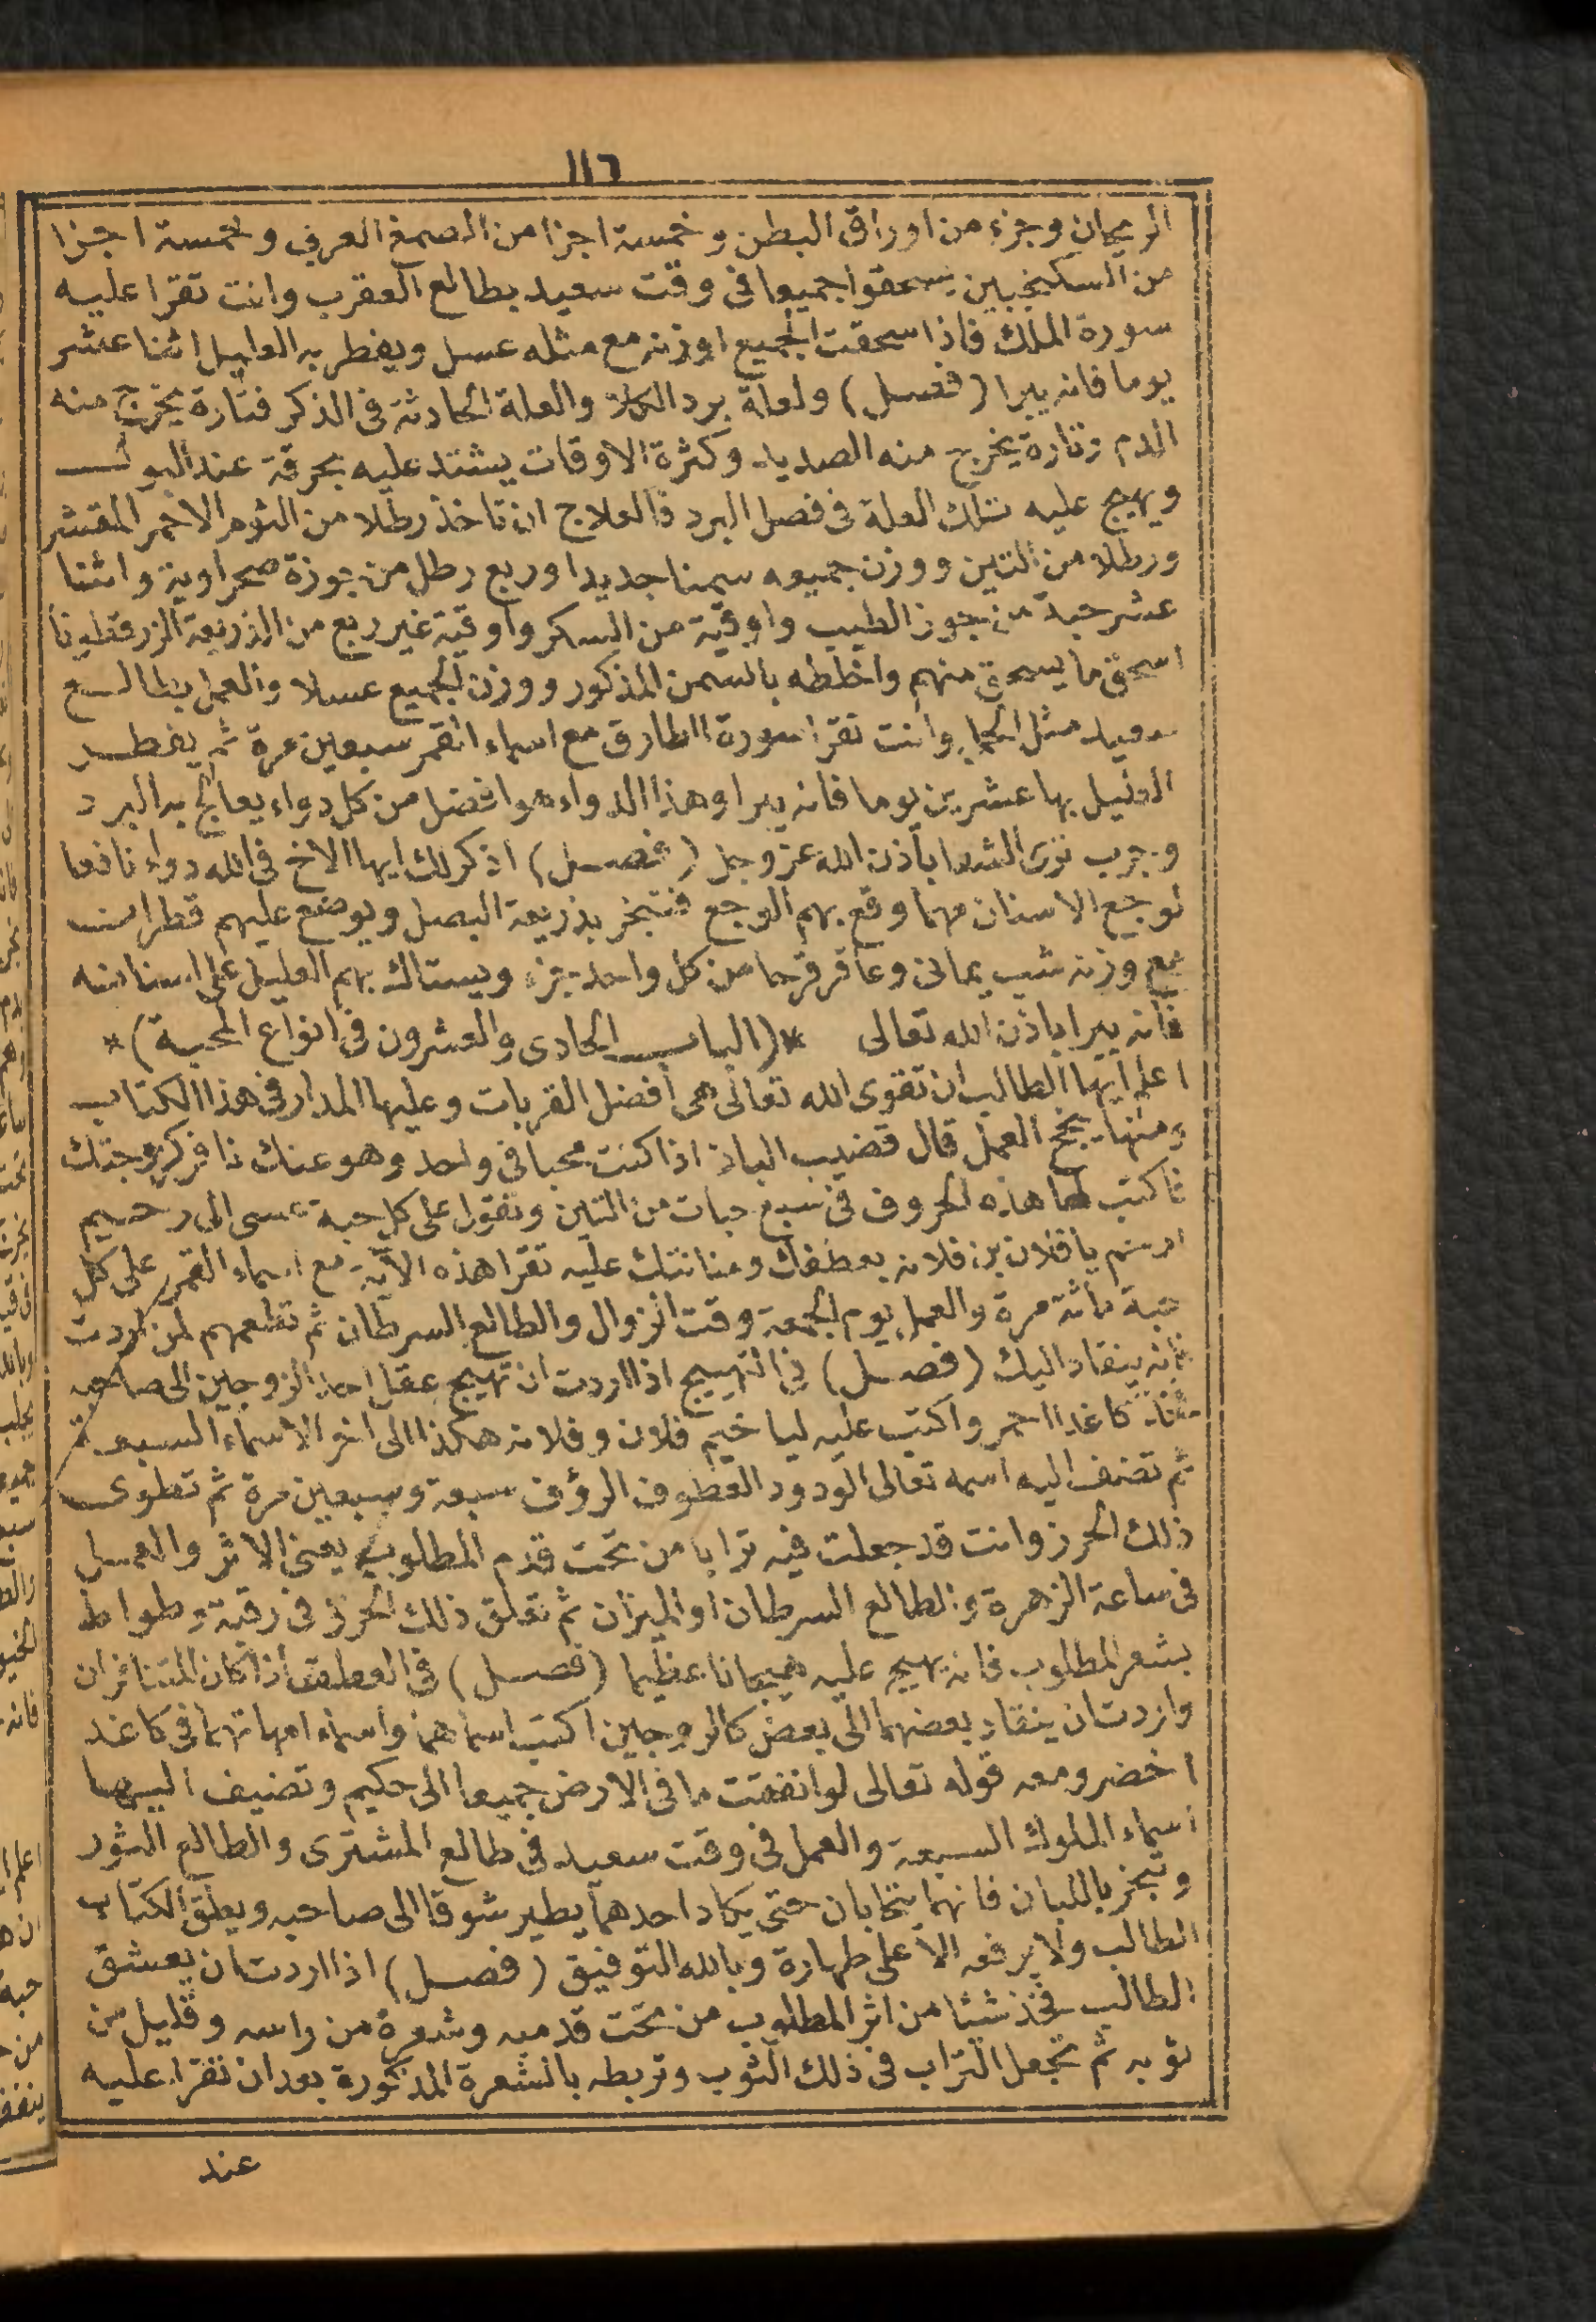 ١١٦
الريحان وجزء من اوراق البطن وخمسة اجزا من الصمغ العربي وخمسة اجزا
من السكنجبين يسحقوا جميعا فى وقت سعيد بطالع العقرب وانت تقرا عليه
سورة الملك فاذا سحقت الجميع اوزنه مع مثله عسل ويفطر به العليل اثنا عشر
يوما فانه يبرا (فصل) ولعلة برد الكلا والعلة الحادثة فى الذكر فتارة يخرج منه
الدم وتارة يخرج منه الصديد وكثرة الاوقات يشتد عليه بحرقة عند البول
ويهيج عليه تلك العلة فى فصل البرد فالعلاج ان تاخذ رطلا من الثوم الاحمر المقشر
ورطلا من التين ووزن جميعه سمنا جديدا وربع رطل من جوزة صحراوية واثنا
عشر حبة من جوز الطيب واوقية من السكر واوقية غير ربع من الذريعة الزرقطونا
اسحق ما يسحق منهم واخلطه بالسمن المذكور ووزن الجميع عسلا والعمل بطالع
سعيد مثل وانت تقرا سورة الطارق مع اسماء القمر سبعين مرة ثم يفطر
العليل بها عشرين يوما فانه يبرا وهذا الدواء هو افضل من كل دواء يعالج به البرد
وجرب ترى الشفا باذن الله عز وجل (فصل) اذكر لك ايها الاخ فى الله دواء نافعا
لوجع الاسنان مهما وقع بهم الوجع فتبخر بذريعة البصل ويوضع عليهم قطران
مع وزنه شب يمانى وعاقر قرحا من كل واحد جزء ويستاك بهم العليل على اسنانه
فانه يبرا باذن الله تعالى *(الباب الحادى والعشرون فى انواع المحبة)*
اعلم ايها الطالب ان تقوى الله تعالى هى أفضل القربات وعليها المدار فى هذا الكتاب
ومنها ينجح العمل قال قضيب الباذ اذا كنت محبا فى واحد وهو عنك نافر كزوجتك
فاكتب لها هذه الحروف فى سبع حبات من التين وتقول على كل حبة عسى الى رحيم
يا فلان بن فلانه بعطفك ومنانتك عليه تقرا هذه الآية مع اسماء القمر على كل
حبة مائة مرة والعمل يوم الجمعة وقت الزوال والطالع السرطان ثم تطعمهم لمن اردت
فانه ينقاد اليك (فصل) فى التهييج اذا اردت ان تهيج عقل احد الزوجين الى صاحبه
فخذ كاغدا احمر واكتب عليه ليا خيم فلان وفلانه هكذا الى اخر الاسماء السبعة
ثم تضف اليه اسمه تعالى الودود العطوف الرؤف سبعة وسبعين مرة ثم تطوى
ذلك الحرز وانت قد جعلت فيه ترابا من تحت قدم المطلوب يعنى الاثر والعمل
فى ساعة الزهرة والطالع السرطان او الميزان ثم تعلق ذلك الحرز فى رقبة وطواط
بشعر المطلوب فانه يهيج عليه هيجانا عظيما (فصل) فى العطف اذا كان المتنافران
واردت ان ينقاد بعضهما الى بعض كالزوجين اكتب اسماهما واسماء امهاتهما فى كاغد
اخضر ومعه قوله تعالى لو انفقت ما فى الارض جميعا الى حكيم وتضيف اليها
اسماء الملوك السبعة والعمل فى وقت سعيد فى طالع المشترى والطالع الثور
وتبخر باللبان فانهما يتحابان حتى يكاد احدهما يطير شوقا الى صاحبه ويعلق الكتاب
الطالب ولا يرفعه الا على طهارة وبالله التوفيق (فصل) اذا اردت ان يعشق
الطالب فخذ شيئا من اثر المطلوب من تحت قدميه وشعرة من راسه وقليل من
ثوبه ثم تجعل التراب فى ذلك الثوب وتربطه بالشعرة المذكورة بعد ان تقرا عليه
عند